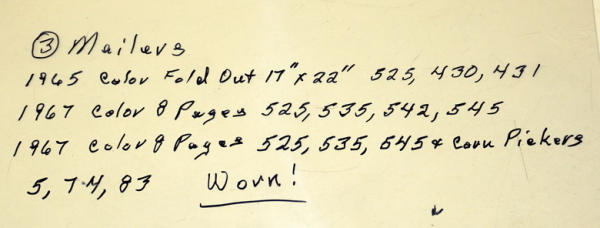 ③ Mailers
1965 Color Fold Out 17" x 22" 525, 430, 431
1967 Color 8 Pages 525, 535, 542, 545
1967 Color 8 Pages 525, 535, 545 & Corn Pickers
5, 7-M, 83 Worn!